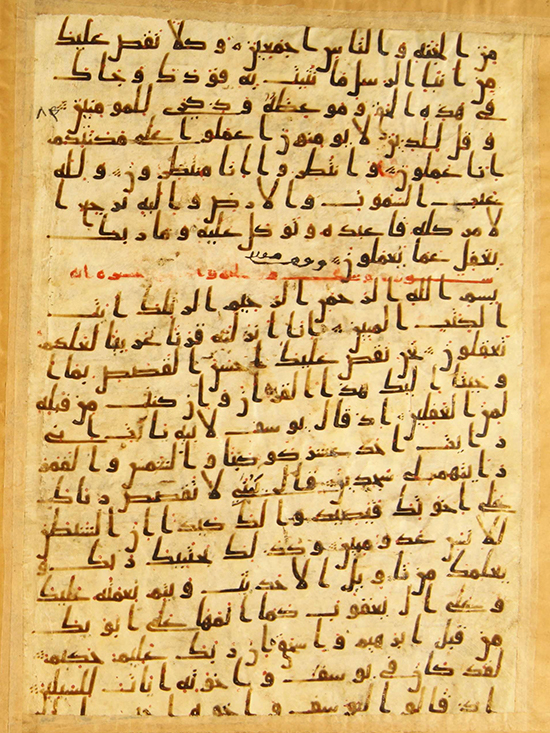 من الجنه والناس اجمعين وكلا نقص عليك
من انبا الرسل ما نثبت به فودك وجاك
في هذه الحق وموعظه وذكرى للمومنين
وقل للذين لا يومنون اعملوا على مكنتكم
انا عملون وانتظروا انا منتظرون ولله
غيب السموت والارض واليه يرجع ا
لامر كله فاعبده وتوكل عليه وما ربك
بغفل عما تعملون
بسم الله الرحمن الرحيم الر تلك ايت
الكتب المبين انا انزلنه قرنا عربيا لعلكم
تعقلون نحن نقص عليك احسن القصص بما ا
وحينا اليك هذا القران وان كنت من قبله
لمن الغفلين اذ قال يوسف لابيه يابت اني
رايت احد عشر كوكبا والشمس والقمر
رايتهم لي سجدين قال يبني لا تقصص رياك
على اخوتك فيكيدوا لك كيدا ان الشيطن
للانسن عدو مبين وكذلك يجتبيك ربك و
يعلمك من تاويل الاحديث ويتم نعمته عليك
وعلى ال يعقوب كما اتمها على ابويك
من قبل ابرهيم واسحق ان ربك عليم حكيم
لقد كان في يوسف واخوته ايات للسايلين
اذ قالوا ليوسف واخوه احب